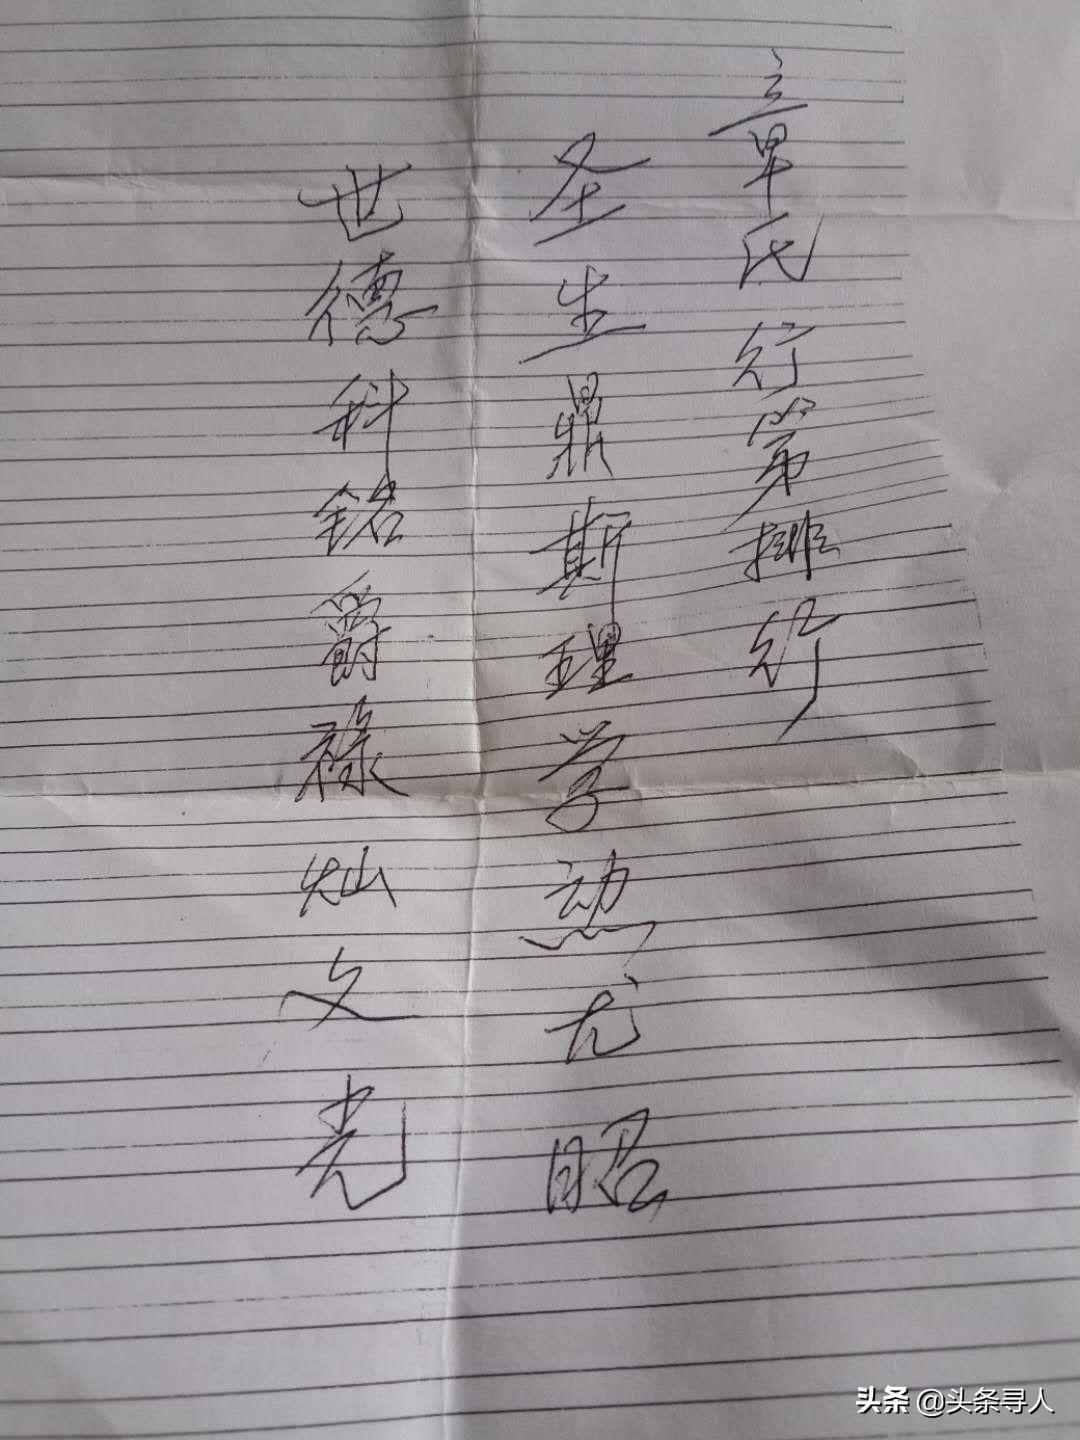 章氏行第排行
圣生鼎斯理学勋尤昭
世德科铭爵禄灿文光
头条 @头条寻人